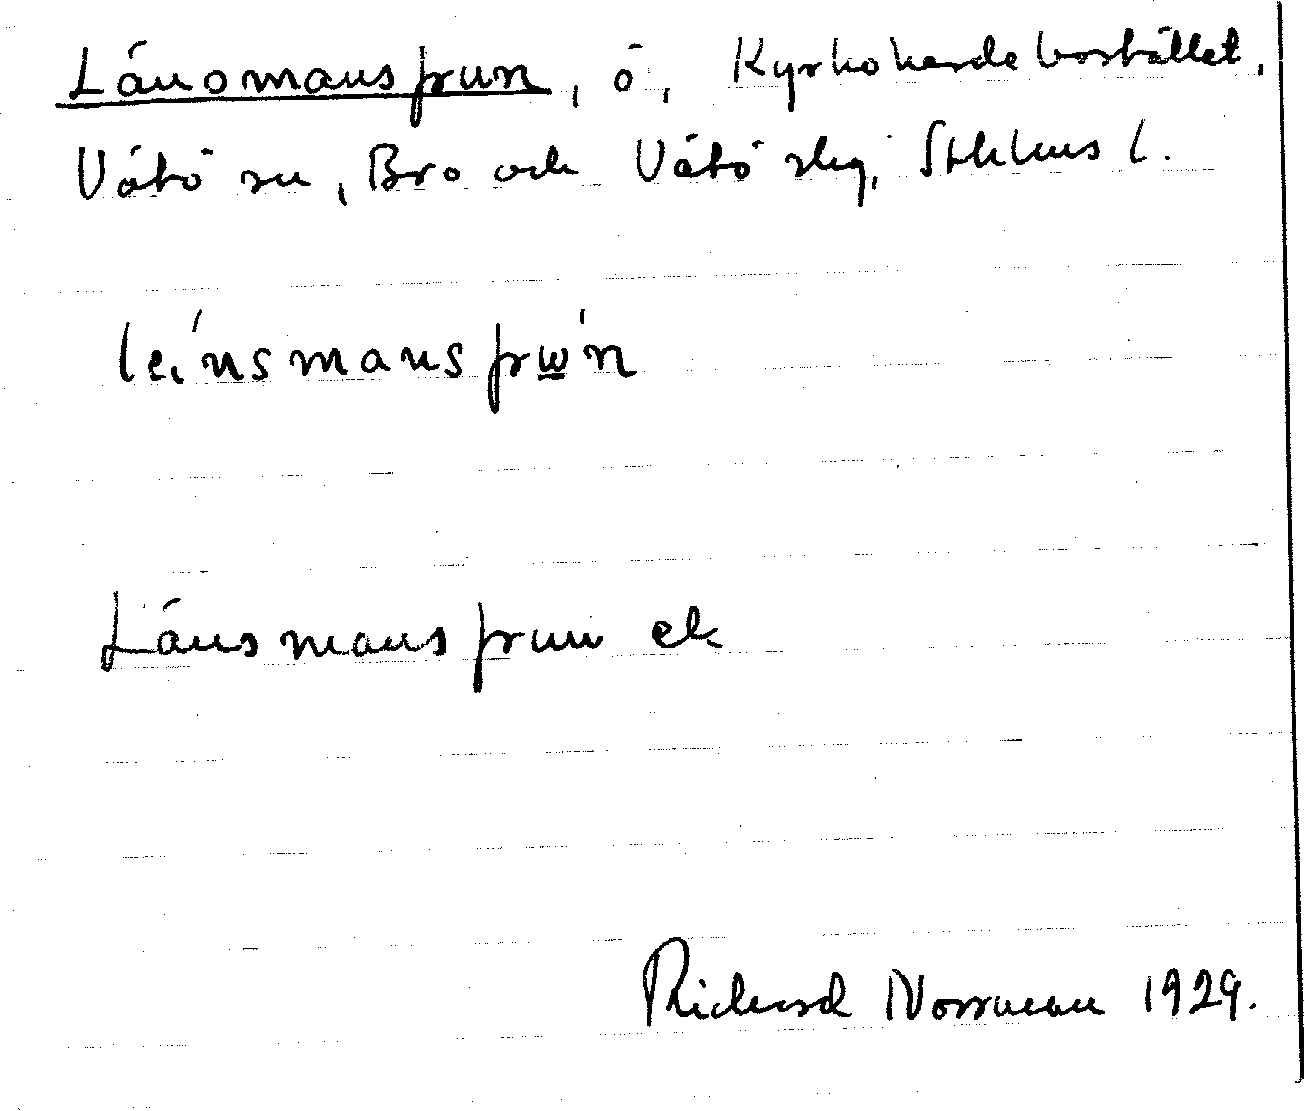 Länsmansfrun, ö, Kyrkoherdebostället,
Vätö sn, Bro och Vätö skg, Sthlms l.
leńsmansfrẁn
Länsmansfrun ek
Richard Norrman 1929.